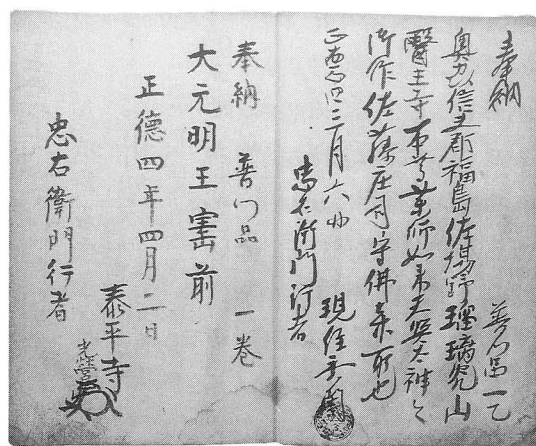 奉納
普門品一
奥州信夫郡福島佐場野瑠璃光山
醫王寺本尊薬師如来
御作佐藤庄司守佛
三月六日
現住
忠右衛門行者
奉納 普門品 一巻
大元明王寳前
正徳四年四月二日
泰平寺
忠右衛門行者